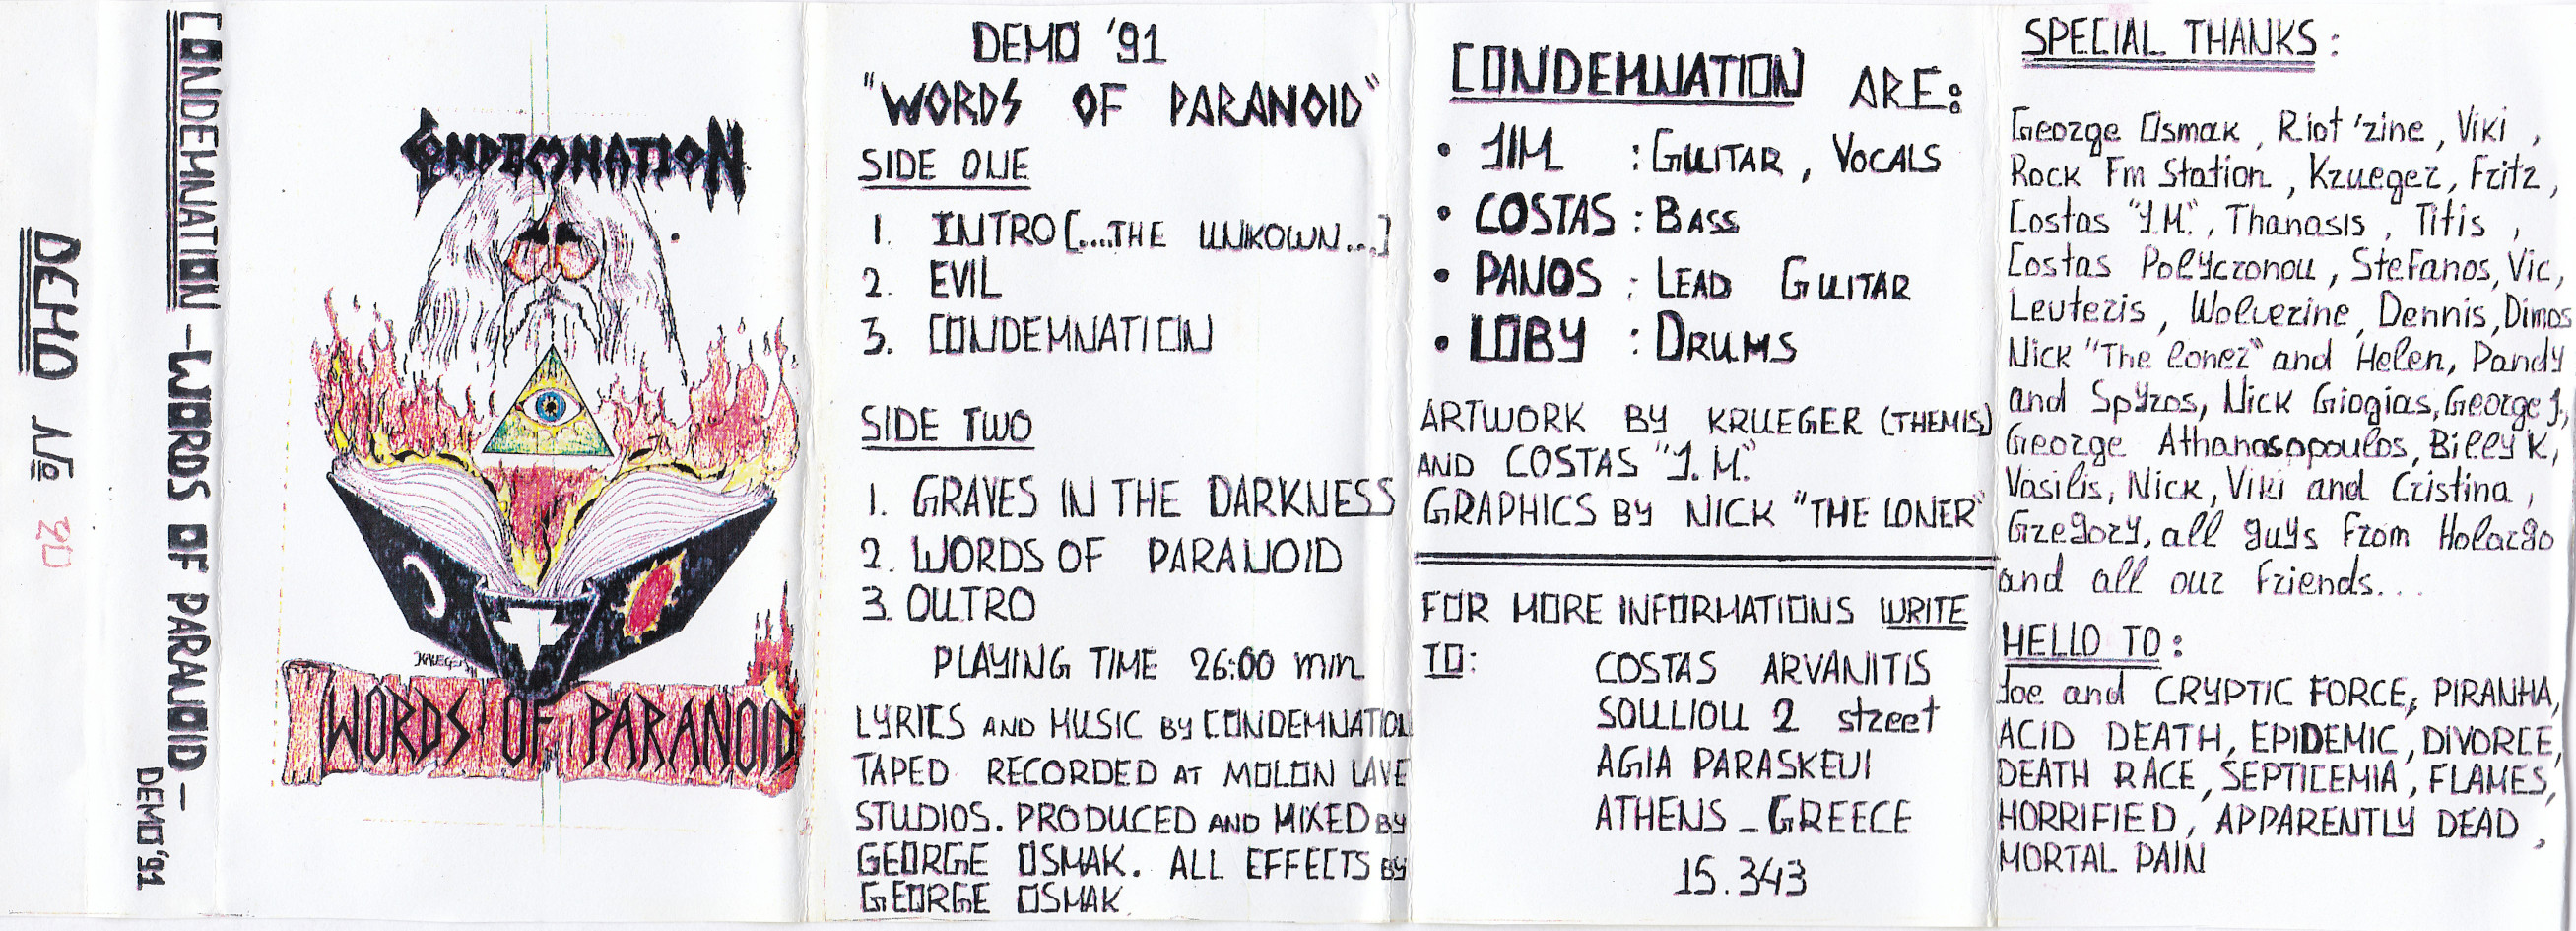 DEMO № 20
CONDEMNATION - WORDS OF PARANOID -
DEMO '91
CONDEMNATION
KRUEGER
WORDS OF PARANOID
DEMO '91
"WORDS OF PARANOID"
SIDE ONE
1. INTRO [....THE UNKOWN...]
2. EVIL
3. CONDEMNATION
SIDE TWO
1. GRAVES IN THE DARKNESS
2. WORDS OF PARANOID
3. OUTRO
PLAYING TIME 26:00 min
LYRICS AND MUSIC BY CONDEMNATION
TAPED RECORDED AT MOLON LAVE
STUDIOS. PRODUCED AND MIXED BY
GEORGE OSMAK. ALL EFFECTS BY
GEORGE OSMAK
CONDEMNATION ARE:
• JIM : GUITAR, VOCALS
• COSTAS : BASS
• PANOS : LEAD GUITAR
• LOBY : DRUMS
ARTWORK BY KRUEGER (THEMIS)
AND COSTAS "J.M."
GRAPHICS BY NICK "THE LONER"
FOR MORE INFORMATIONS WRITE
TO:
COSTAS ARVANITIS
SOULIOU 2 street
AGIA PARASKEVI
ATHENS - GREECE
15.343
SPECIAL THANKS:
George Osmak, Riot 'zine, Viki,
Rock Fm Station, Krueger, Fritz,
Costas "J.M.", Thanasis, Titis,
Costas Polycronou, Stefanos, Vic,
Leuteris, Wolverine, Dennis, Dimos
Nick "The loner" and Helen, Pandy
and Spyros, Nick Giogias, George J,
George Athanasopoulos, Billy K,
Vasilis, Nick, Viki and Cristina,
Gregory, all guys from Holargo
and all our friends...
HELLO TO:
Joe and CRYPTIC FORCE, PIRANHA,
ACID DEATH, EPIDEMIC, DIVORCE,
DEATH RACE, SEPTICEMIA, FLAMES,
HORRIFIED, APPARENTLY DEAD,
MORTAL PAIN